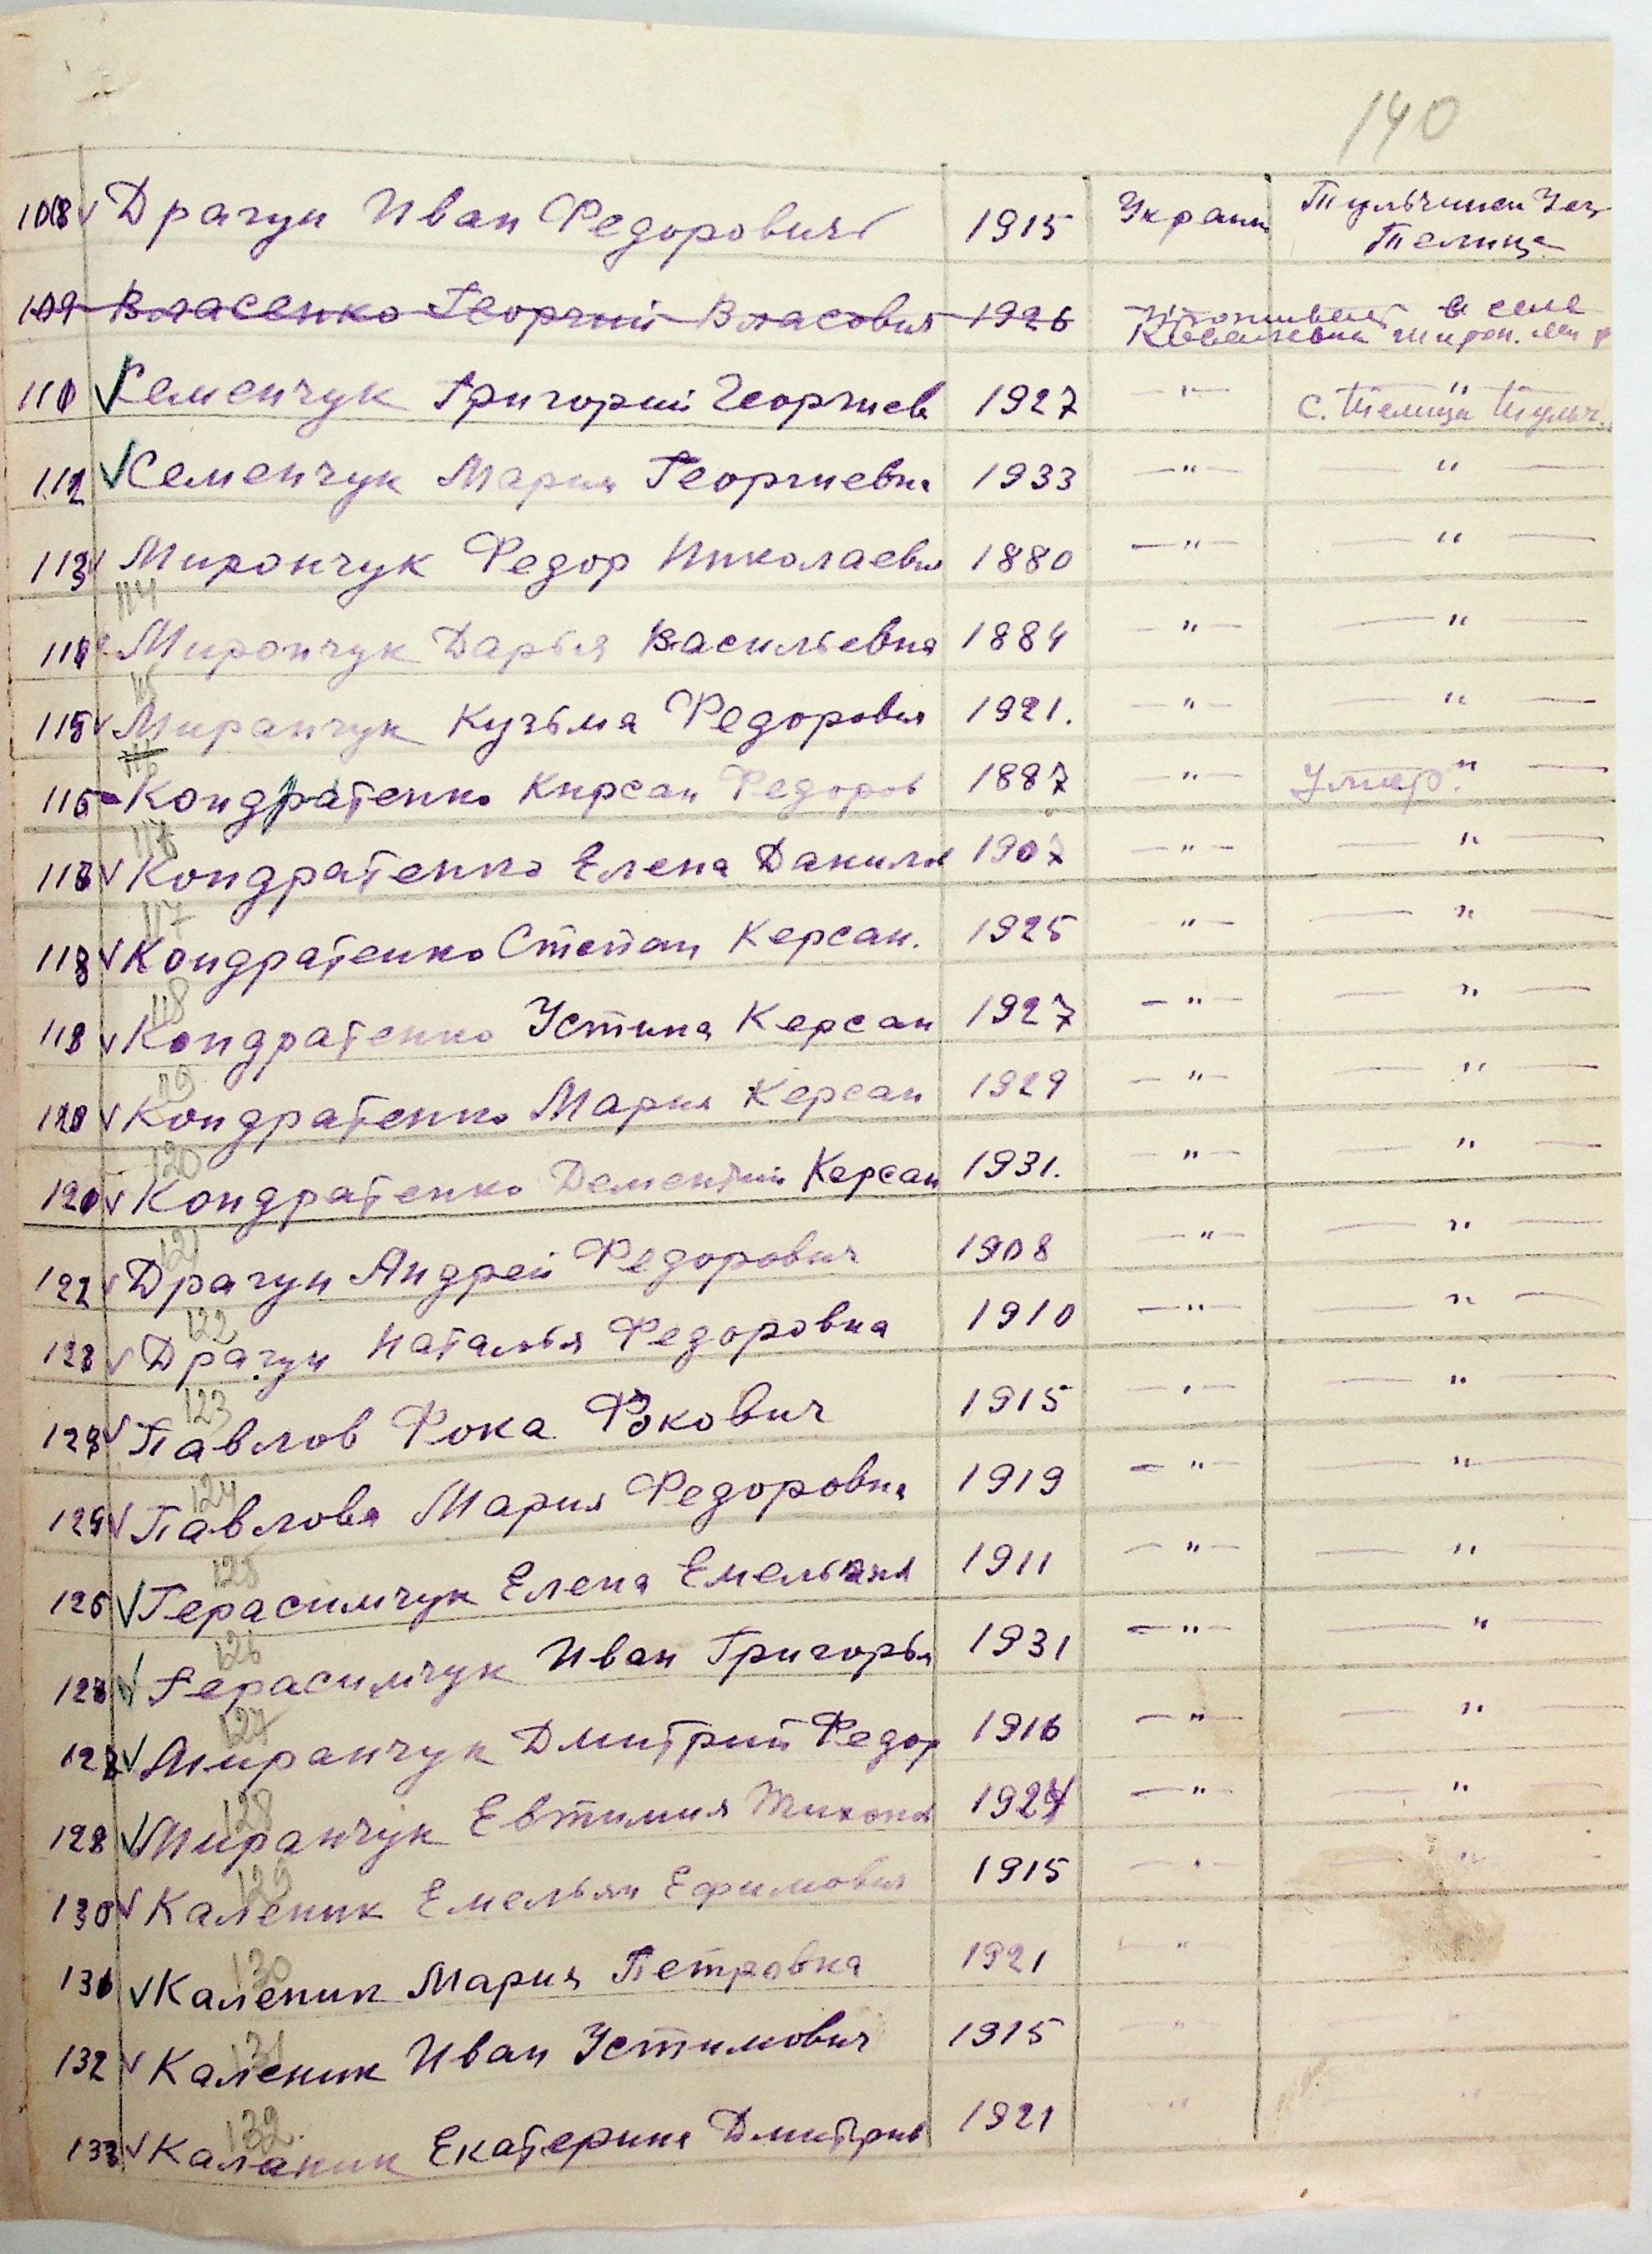 140
108 ✓ Драгун Иван Федорович 1915 Украин
Телица
109 Власенко Георгий Власович 1926 в селе
110 ✓ Семенчук Григорий Георгиев 1927 -"- "
с. Телица Тульч.
112 ✓ Семенчук Мария Георгиевна 1933 -"- — " —
113 ✓ Мирончук Федор Николаевич 1880 -"- — " —
114
Мирончук Дарья Васильевна 1884 -"- — " —
115
115 ✓ Миранчук Кузьма Федорович 1921. -"- — " —
116
116 Кондратенко Кирсан Федоров 1887 -"- Умер. " —
118 ✓ Кондратенко Елена Данил 1907 -"- — " —
117
118 ✓ Кондратенко Степан Керсан. 1925 -"- — " —
118
119 ✓ Кондратенко Устина Керсан 1927 -"- — " —
119
120 ✓ Кондратенко Мария Керсан 1929 -"- — " —
120
120 ✓ Кондратенко Дементий Керсан 1931. -"- — " —
121
122 ✓ Драгун Андрей Федорович 1908 -"- — " —
122
123 ✓ Драгун Наталья Федоровна 1910 -"- — " —
123
124 ✓ Павлов Фока Фокович 1915 -"- — " —
124
125 ✓ Павлова Мария Федоровна 1919 -"- — " —
125
126 ✓ Герасимчук Елена Емельян 1911 -"- — " —
126
127 ✓ Герасимчук Иван Григорьи 1931 -"- — " —
127
128 ✓ Миранчук Дмитрий Федор 1916 -"- — " —
128
129 ✓ Миранчук Евтимия Тихона 1924 -"- — " —
129
130 ✓ Каленик Емельян Ефимович 1915 -"- — " —
130
131 ✓ Каленик Мария Петровна 1921 -"-
131
132 ✓ Каленик Иван Устимович 1915 -"-
132
133 ✓ Каланик Екатерина Дмитрив 1921 "